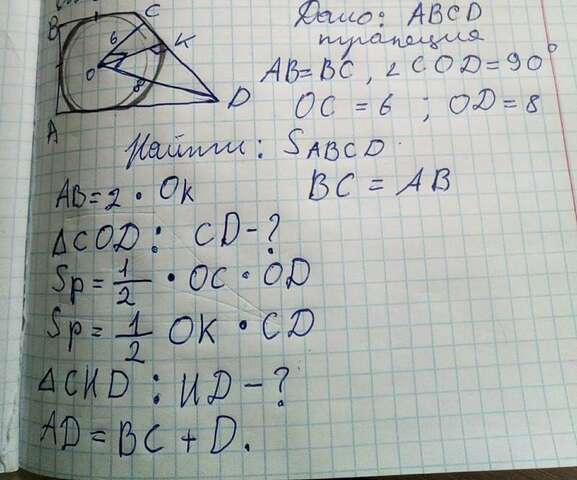 B
C
K
6
O
8
D
A
Дано: ABCD
трапеция
AB=BC, ∠COD=90°
OC=6; OD=8
Найти: SABCD.
AB=2·OK
BC=AB
△COD: CD-?
Sр=1/2·OC·OD
Sр=1/2 OK·CD
△CHD: HD-?
AD=BC+D.